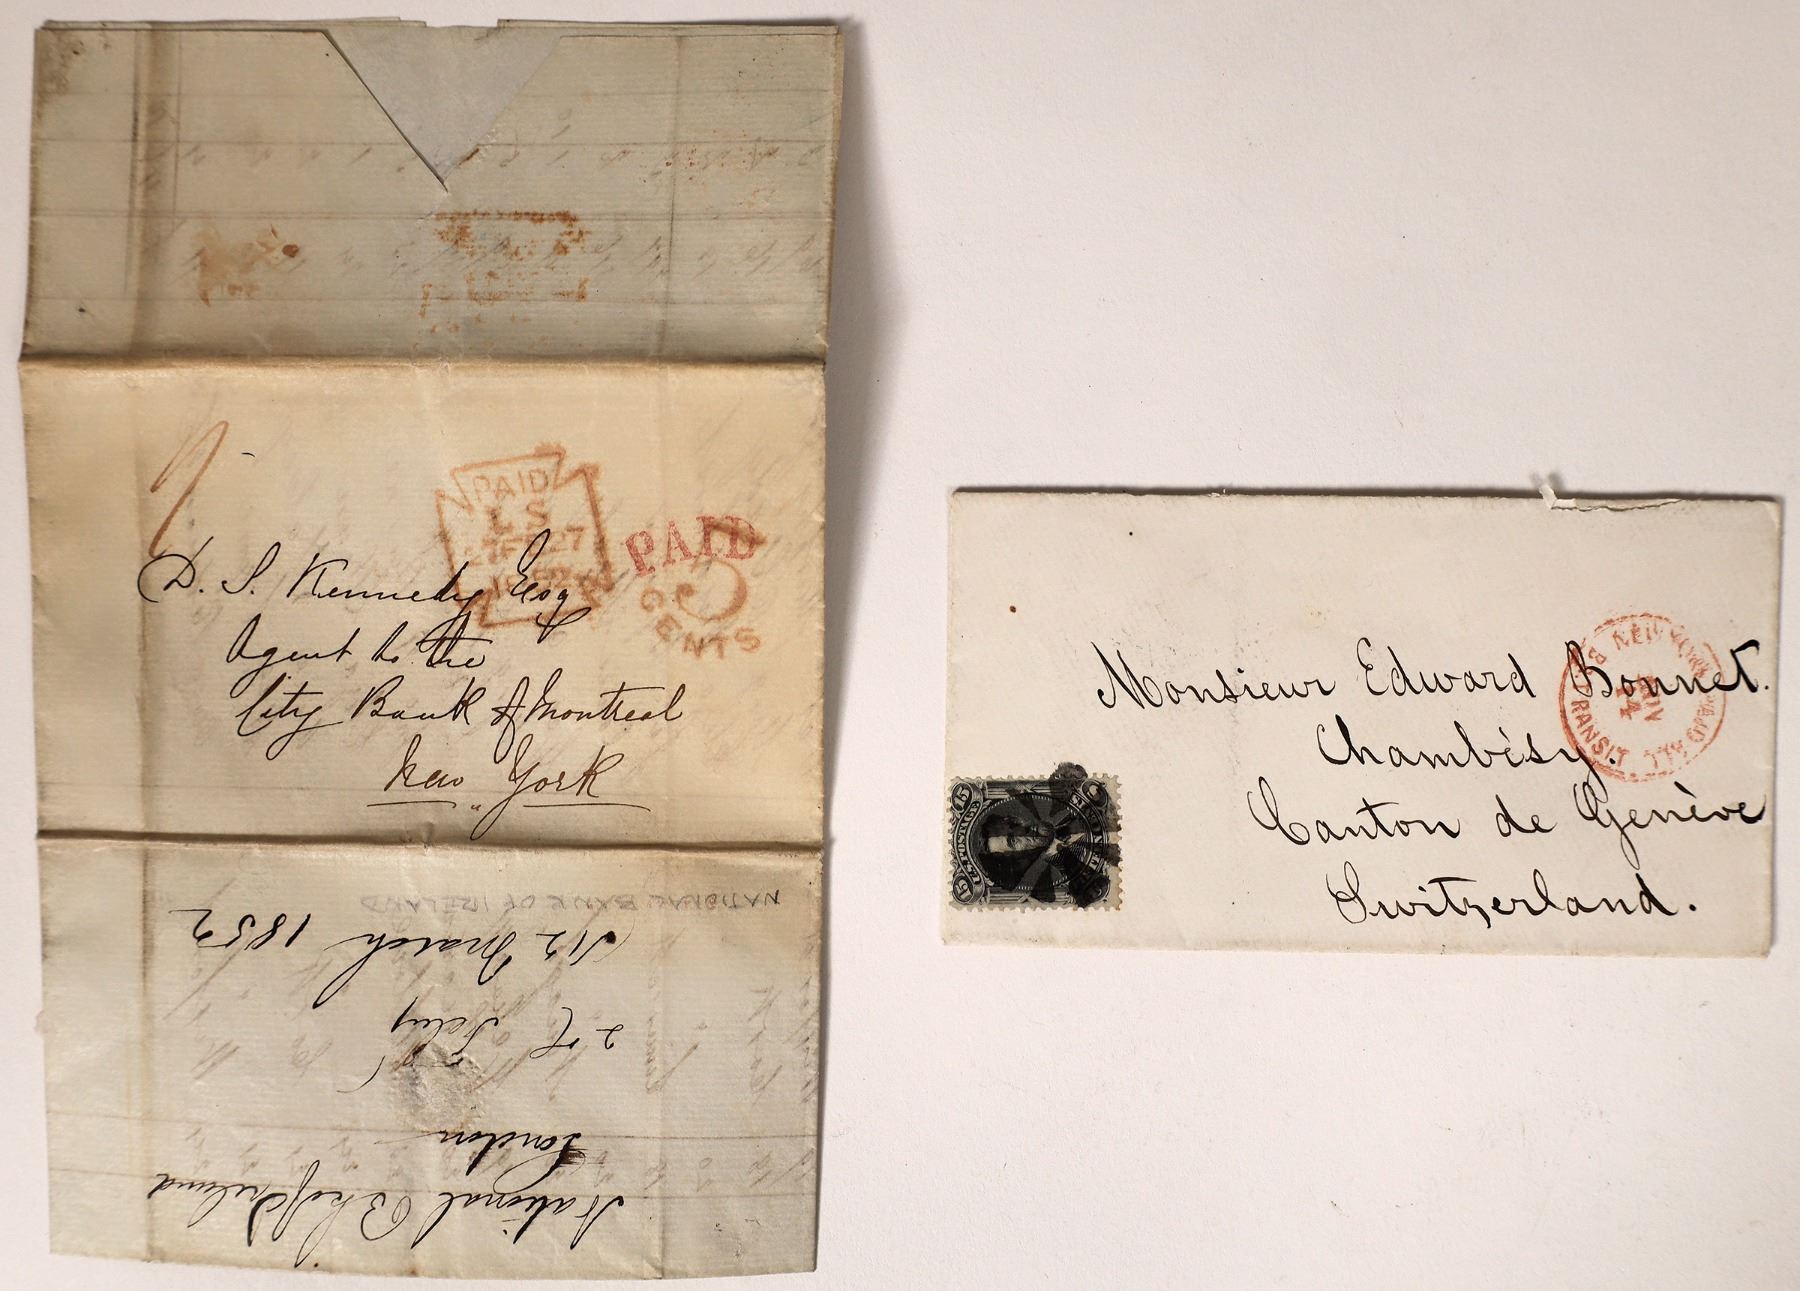 PAID
LS
27FE27
1852
PAID
5
CENTS
D. S. Kennedy Esq
Agent to the
City Bank of Montreal
New York
NATIONAL BANK OF IRELAND
National Bk of Ireland
London
27 Feby
12 March 1852
NEW YORK PAID ALL
BR TRANSIT
Monsieur Edward Bonnet.
Chambésy.
Canton de Genève
Switzerland.
15
U.S. POSTAGE
15